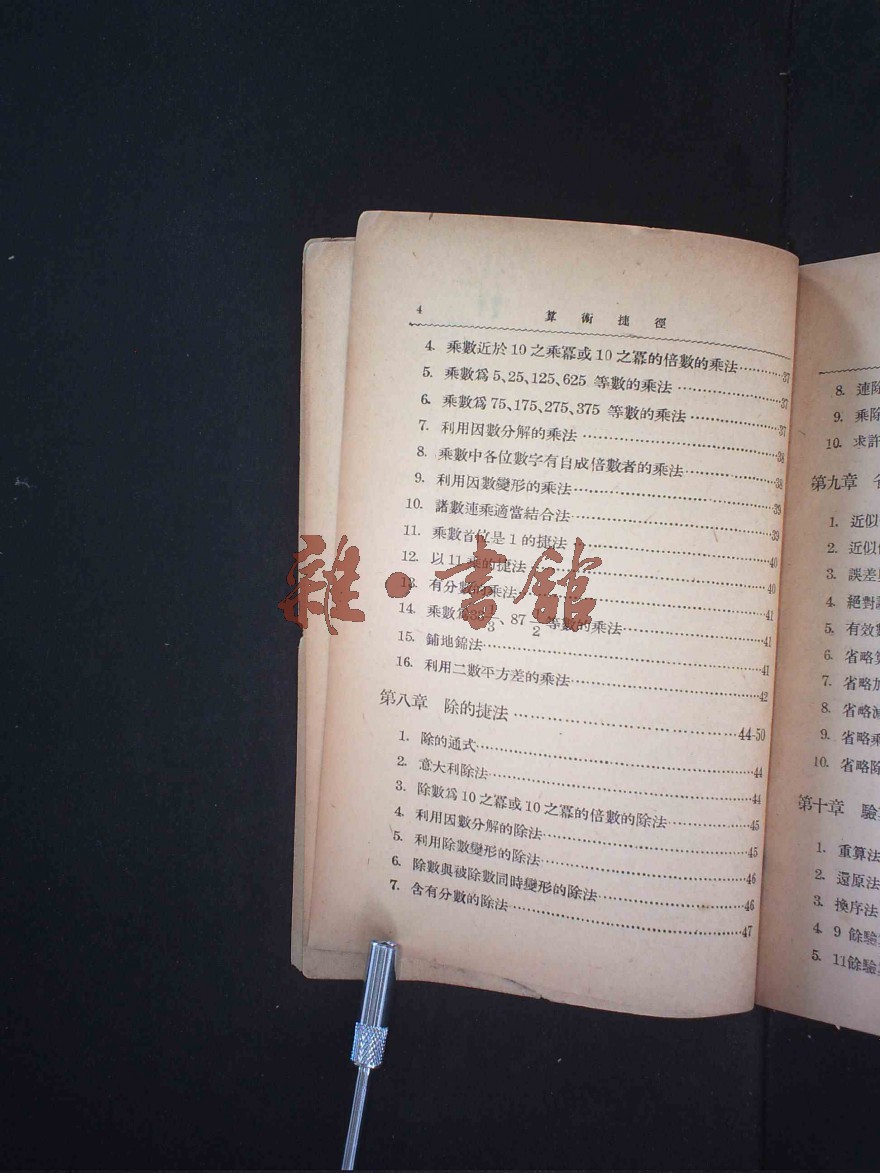 4 算術捷徑
4. 乘數近於10之乘冪或10之冪的倍數的乘法…………37
5. 乘數爲5、25、125、625 等數的乘法…………37
6. 乘數爲75、175、275、375 等數的乘法…………37
7. 利用因數分解的乘法…………38
8. 乘數中各位數字有自成倍數者的乘法…………38
9. 利用因數變形的乘法…………39
10. 諸數連乘適當結合法…………39
11. 乘數首位是1的捷法…………40
12. 以11乘的捷法…………40
13. 有分數的乘法…………41
14. 乘數爲33 1/3、87 1/2 等數的乘法…………41
15. 鋪地錦法…………41
16. 利用二數平方差的乘法…………42
第八章 除的捷法…………44-50
1. 除的通式…………44
2. 意大利除法…………44
3. 除數爲10之冪或10之冪的倍數的除法…………45
4. 利用因數分解的除法…………45
5. 利用除數變形的除法…………46
6. 除數與被除數同時變形的除法…………46
7. 含有分數的除法…………47
雜·書舘
8. 連除
9. 乘除
10. 求許
第九章
1. 近似
2. 近似
3. 誤差
4. 絕對
5. 有效
6. 省略
7. 省略加
8. 省略減
9. 省略乘
10. 省略除
第十章 驗
1. 重算法
2. 還原法
3. 換序法
4. 9餘驗
5. 11餘驗